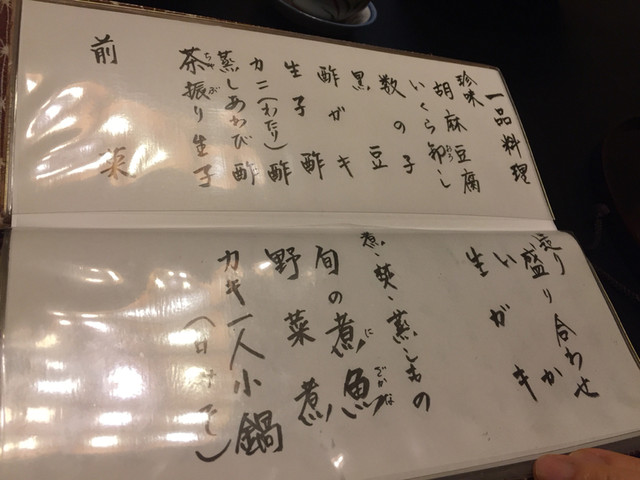 一品料理
珍味
胡麻豆腐
いくら卸し
数の子
黒豆
酢ガキ
生子酢
カニ(わたり)酢
蒸しあわび
茶振り生子
ちゃぶ
前菜
走り盛り合わせ
生がき
煮、焚、蒸しもの
旬の煮魚
に ざかな
野菜煮
カキ一人小鍋